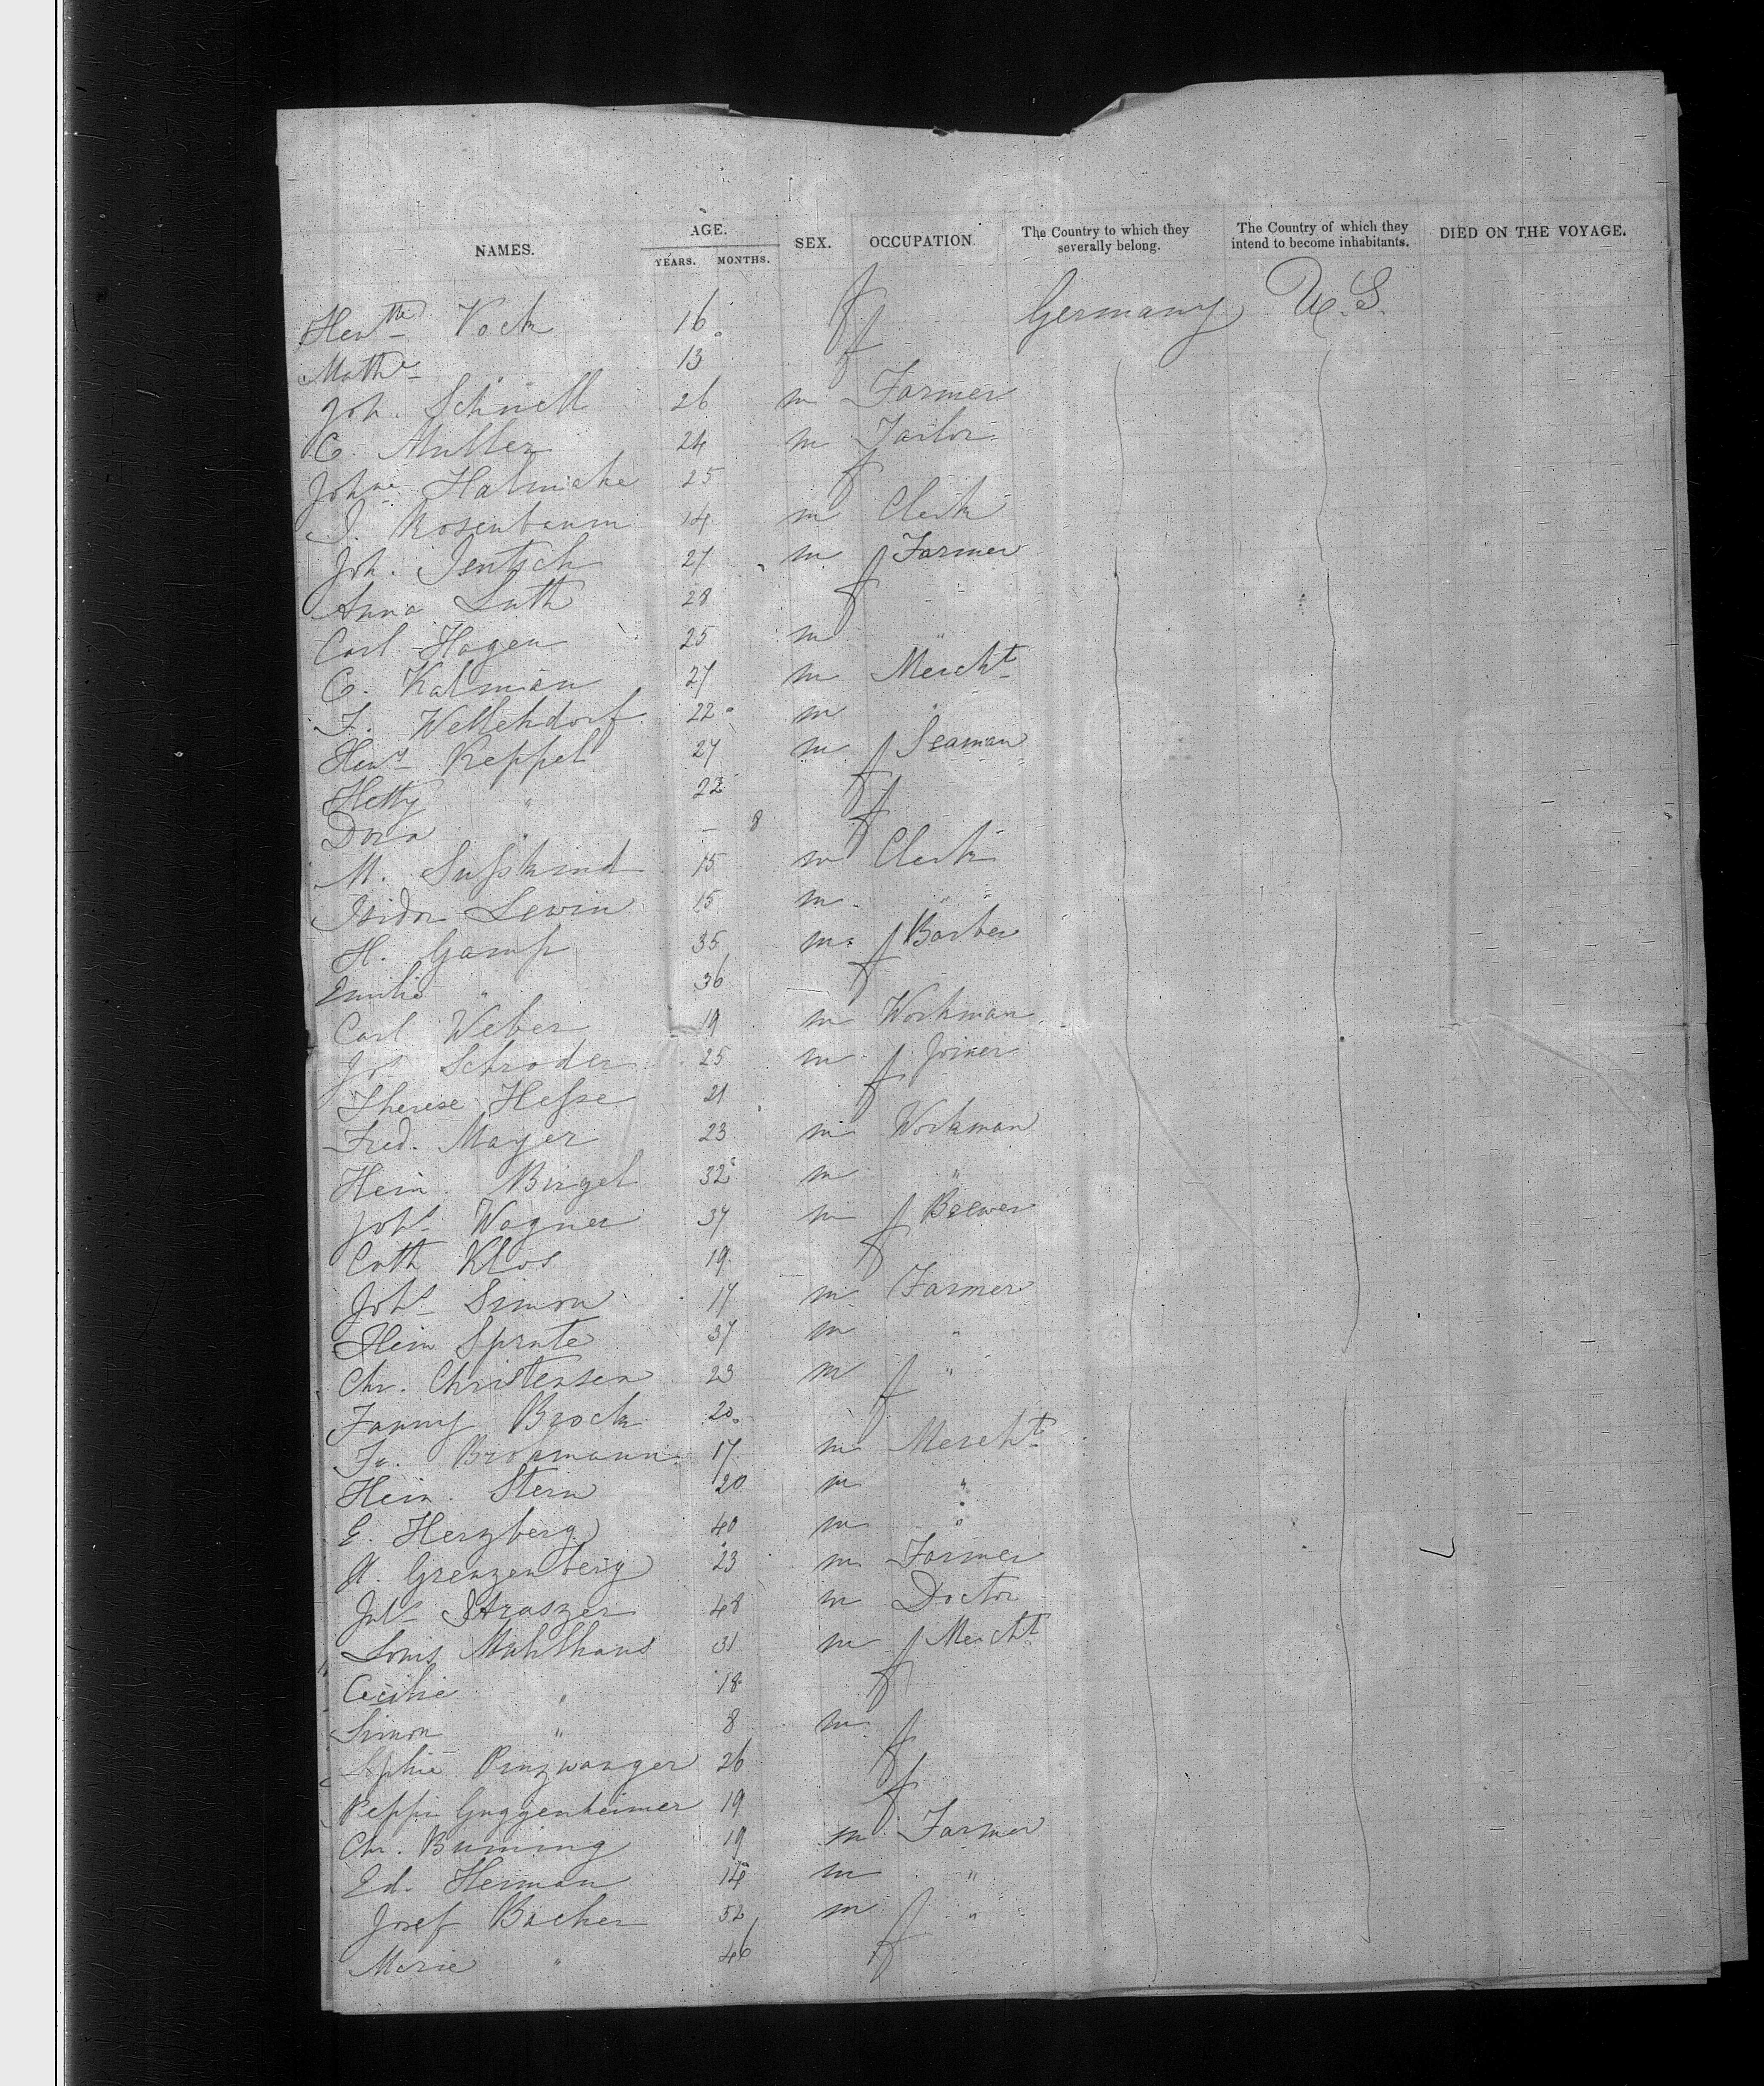 NAMES. AGE. YEARS. MONTHS. SEX. OCCUPATION. The Country to which they severally belong. The Country of which they intend to become inhabitants. DIED ON THE VOYAGE.
Hentte Vock 16 f Germany U.S.
Mathe 13 f
Joh. Schnell 26 m Farmer
C. Muller 24 m Tailor
Johne 25 f
J. Rosenbaum 14 m Clerk
Joh. Jentsch 27 m Farmer
Anna Luth 28 f
Carl Hagen 25 m "
C. Kalman 27 m Mercht
F. Wellehdorf 22 m "
Heny Keppel 27 m Seaman
Hetty " 22 f
Dora " - 8 f
M. Sußkind 15 m Clerk
Isidor Lewin 15 m "
H. Gamß 35 m Barber
Emilie " 36 f
Carl Weber 19 m Workman
Jos Schroder 25 m Joiner
Therese Heßse 21 f
Fred. Mayer 23 m Workman
Hein. Birgel 32 m "
Johs Wagner 37 m Brewer
Cath Klos 19 f
Johs Simon 17 m Farmer
Hein Sprute 37 m "
Chr. Christensen 23 m "
Fanny Brock 20 f
Fr. Brokmann 17 m Mercht
Hein. Stern 20 m "
E. Herzberg 40 m "
A. Grenzenberg 23 m Farmer
Juls Straszer 48 m Doctor
Louis Muhlhaus 31 m Mercht
Cecilie " 18 f
Simon " 8 m
Sophie 26 f
Peppi Guggenheimer 19 f
Chr. Buming 19 m Farmer
Ed. Herman 14 m "
Josef Bacher 52 m "
Marie " 46 f